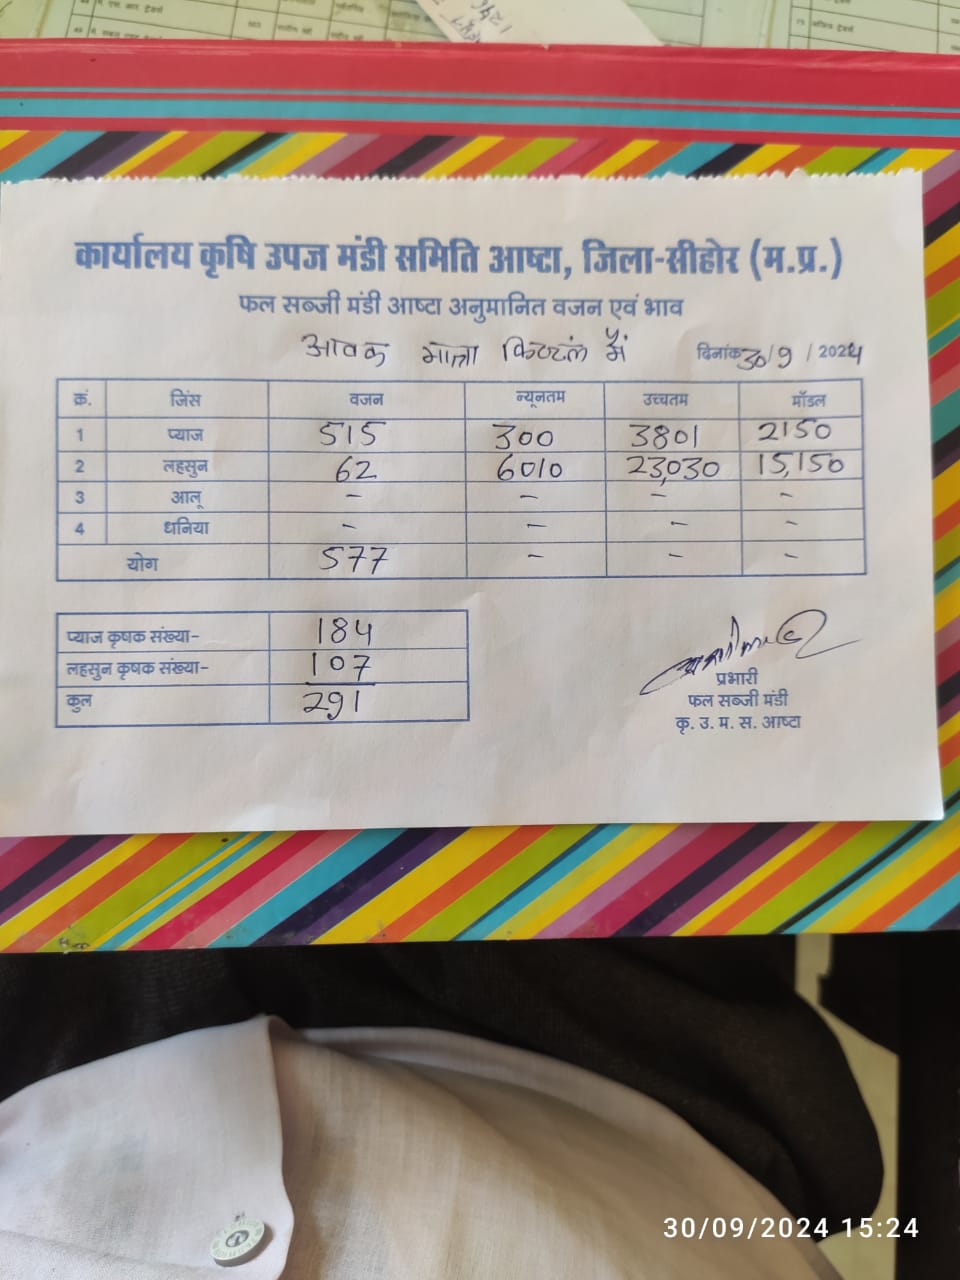 कार्यालय कृषि उपज मंडी समिति आष्टा, जिला-सीहोर (म.प्र.)
फल सब्जी मंडी आष्टा अनुमानित वजन एवं भाव
आवक मात्रा क्विंटल में दिनांक 30/9/2024
क्रं. जिंस वजन न्यूनतम उच्चतम मॉडल
1 प्याज 515 300 3801 2150
2 लहसुन 62 6010 23,030 15,150
3 आलू - - - -
4 धनिया - - - -
योग 577 - - -
प्याज कृषक संख्या- 184
लहसुन कृषक संख्या- 107
कुल 291
प्रभारी
फल सब्जी मंडी
कृ. उ. म. स. आष्टा
30/09/2024 15:24